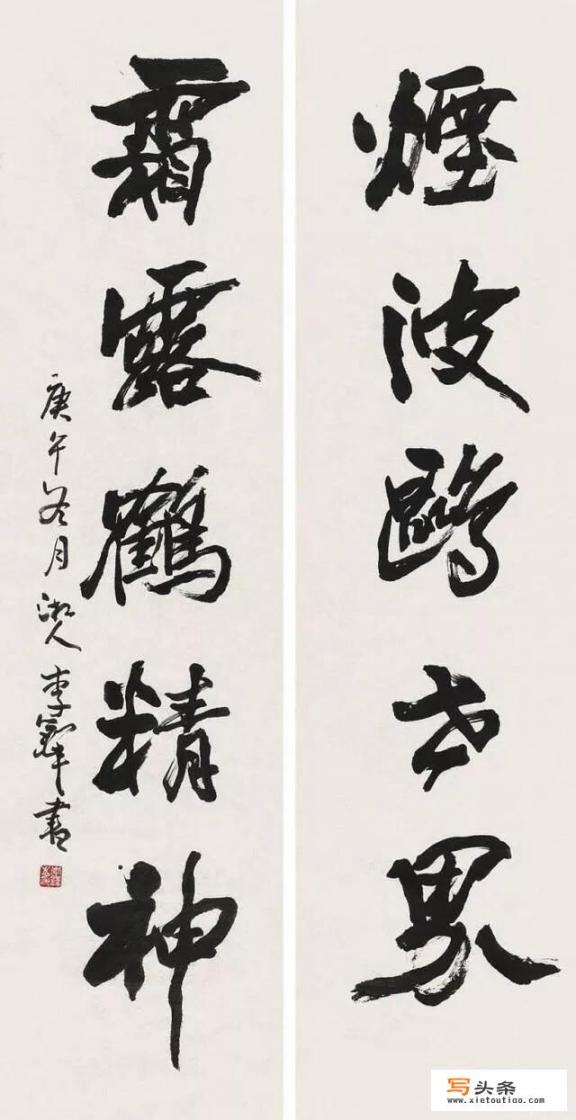 煙波鷗世界
霜露鶴精神
庚午冬月湘人李鐸書
写头条
www.xietoutiao.com